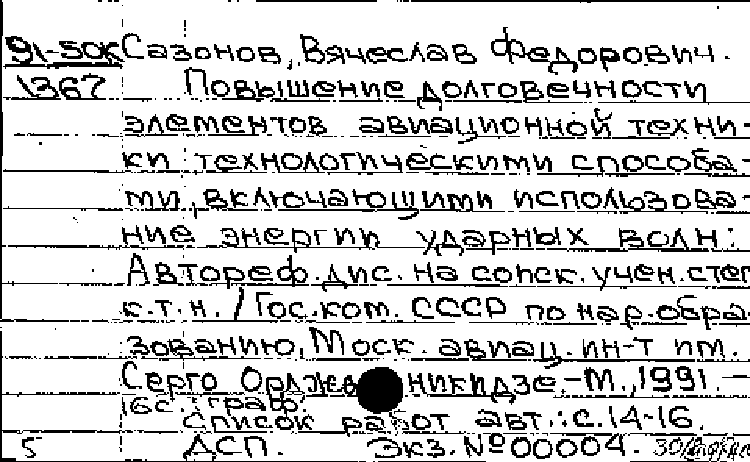 91-50К Сазонов, Вячеслав Федорович.
1367 Повышение долговечности
элементов авиационной техни-
ки технологическими способа-
ми, включающими использова-
ние энергии ударных волн:
Автореф. дис. на соиск. учен. степ
к.т.н. / Гос. ком. СССР по нар. обра-
зованию, Моск. авиац. ин-т им.
Серго Орджоникидзе. - М., 1991. -
16с.: граф.
Список работ авт.: с. 14-16.
5 ДСП. Экз. № 00004.